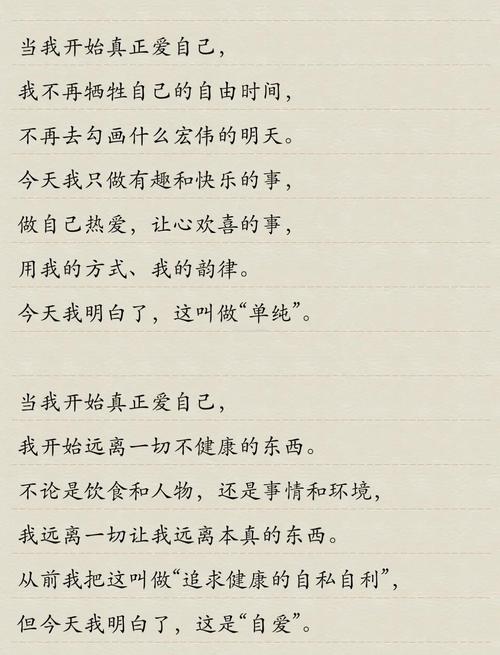 当我开始真正爱自己，
我不再牺牲自己的自由时间，
不再去勾画什么宏伟的明天。
今天我只做有趣和快乐的事，
做自己热爱，让心欢喜的事，
用我的方式、我的韵律。
今天我明白了，这叫做“单纯”。
当我开始真正爱自己，
我开始远离一切不健康的东西。
不论是饮食和人物，还是事情和环境，
我远离一切让我远离本真的东西。
从前我把这叫做“追求健康的自私自利”，
但今天我明白了，这是“自爱”。